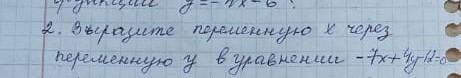 функции y=-7x-6
2. Выразите переменную x через
переменную y в уравнении -7x+4y-12=0